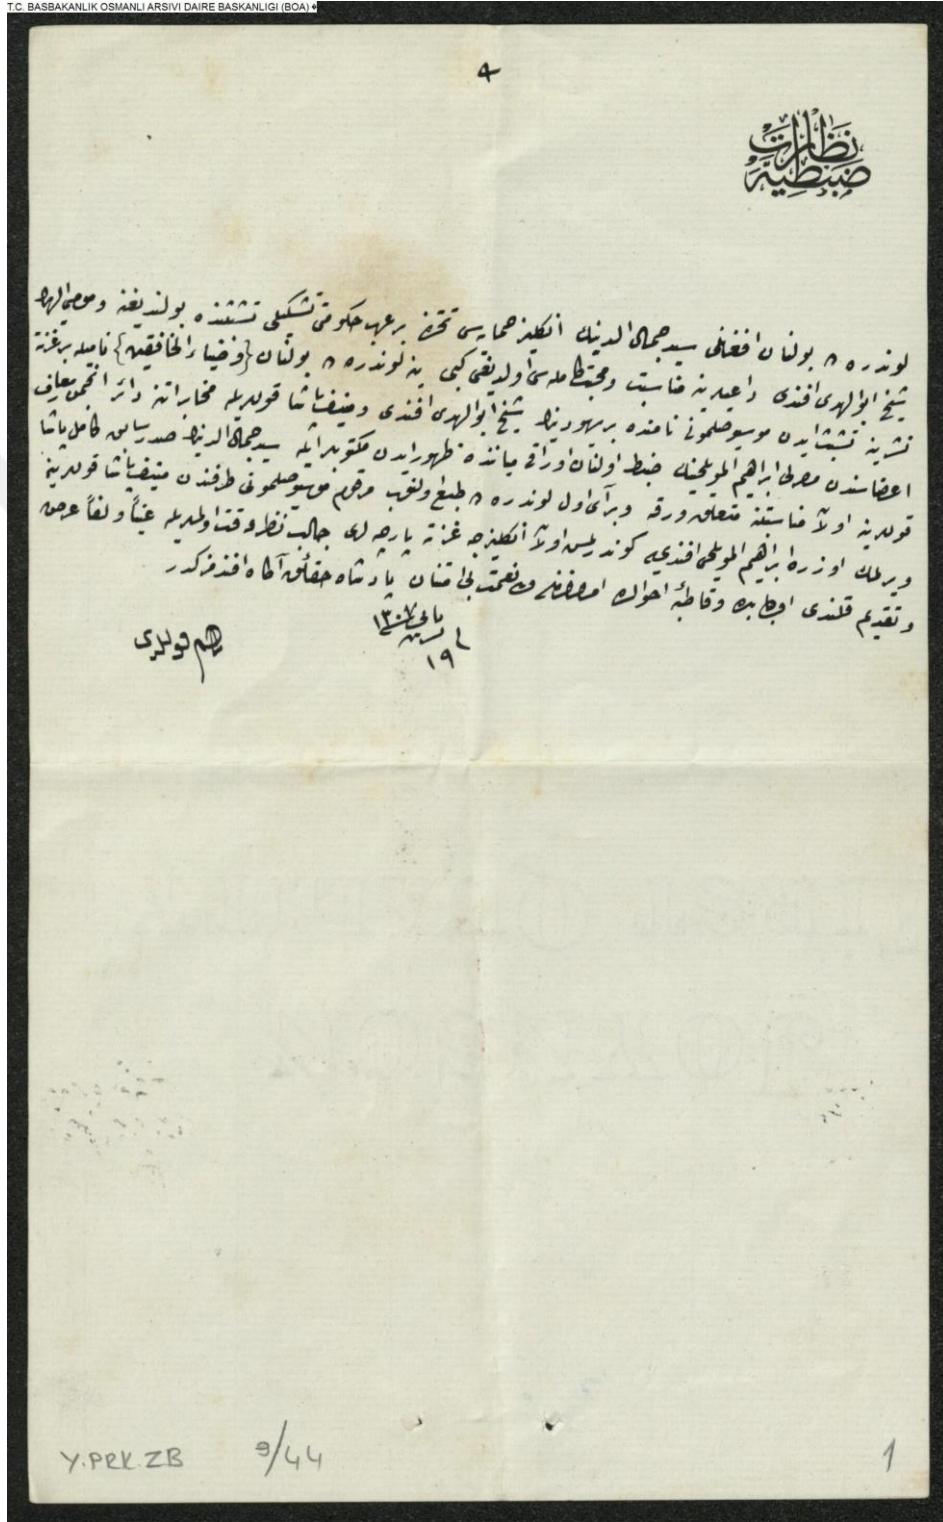 T.C. BASBAKANLIK OSMANLI ARSIVI DAIRE BASKANLIGI (BOA)
نظارت
ضبطيه
لوندره ده بولنان افغانلى سيد جمال الدينك انكليز حمايه سى تحتنده بر عرب حكومتى تشكيلى تشبثنده بولنديغنه و مومى اليهله
شيخ ابوالهدى افندى داعيلرينه مناسبت و محبت كامله سى اولديغى كبى ينه لوندره ده بولنان {ضياء الخافقين} ناميله بر غزته
نشرينه تشبث ايدن موسيو صلمونى نامنده بر يهودينك شيخ ابوالهدى افندى و منيف پاشا قوللريله مخابراتنه دائر انجمن معارف
اعضاسندن مصرلى ابراهيم المويلحينك ضبط اولنان اوراقى مياننده ظهور ايدن مكتوبلر ايله سيد جمال الدينك صدر سابق كامل پاشا
قوللرينه اولان مناسبتنه متعلق ورقه و برآى اول لوندره ده طبع اولنوب مرقوم موسيو صلمونى طرفندن منيف پاشا قوللرينه
ويرلمك اوزره ابراهيم المويلحى افندى يه كوندرلمش اولان انكليزجه غزته پارچه لرى جالب نظر دقت اولمغله عيناً و لفاً عرض
و تقديم قلندى اولبابده و قاطبهٔ احوالده امر و فرمان ولى نعمت بى امتنان پادشاه حقائق آگاه افندمزكدر
١٩
١٣٠٧
قوللرى
Y.PRK.ZB 9/44 1